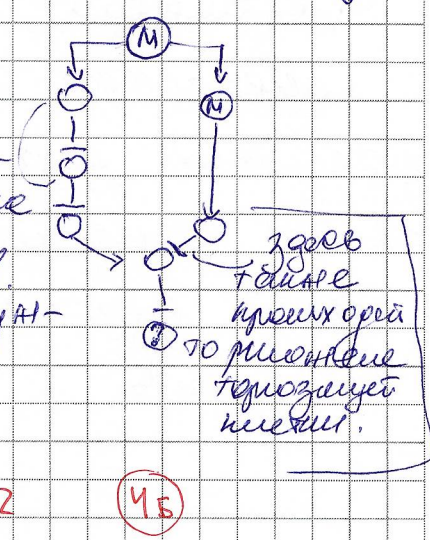 М
М
здесь
также
происходит
торможение
тормозящей
клетки.
?
ин-
2
4Б